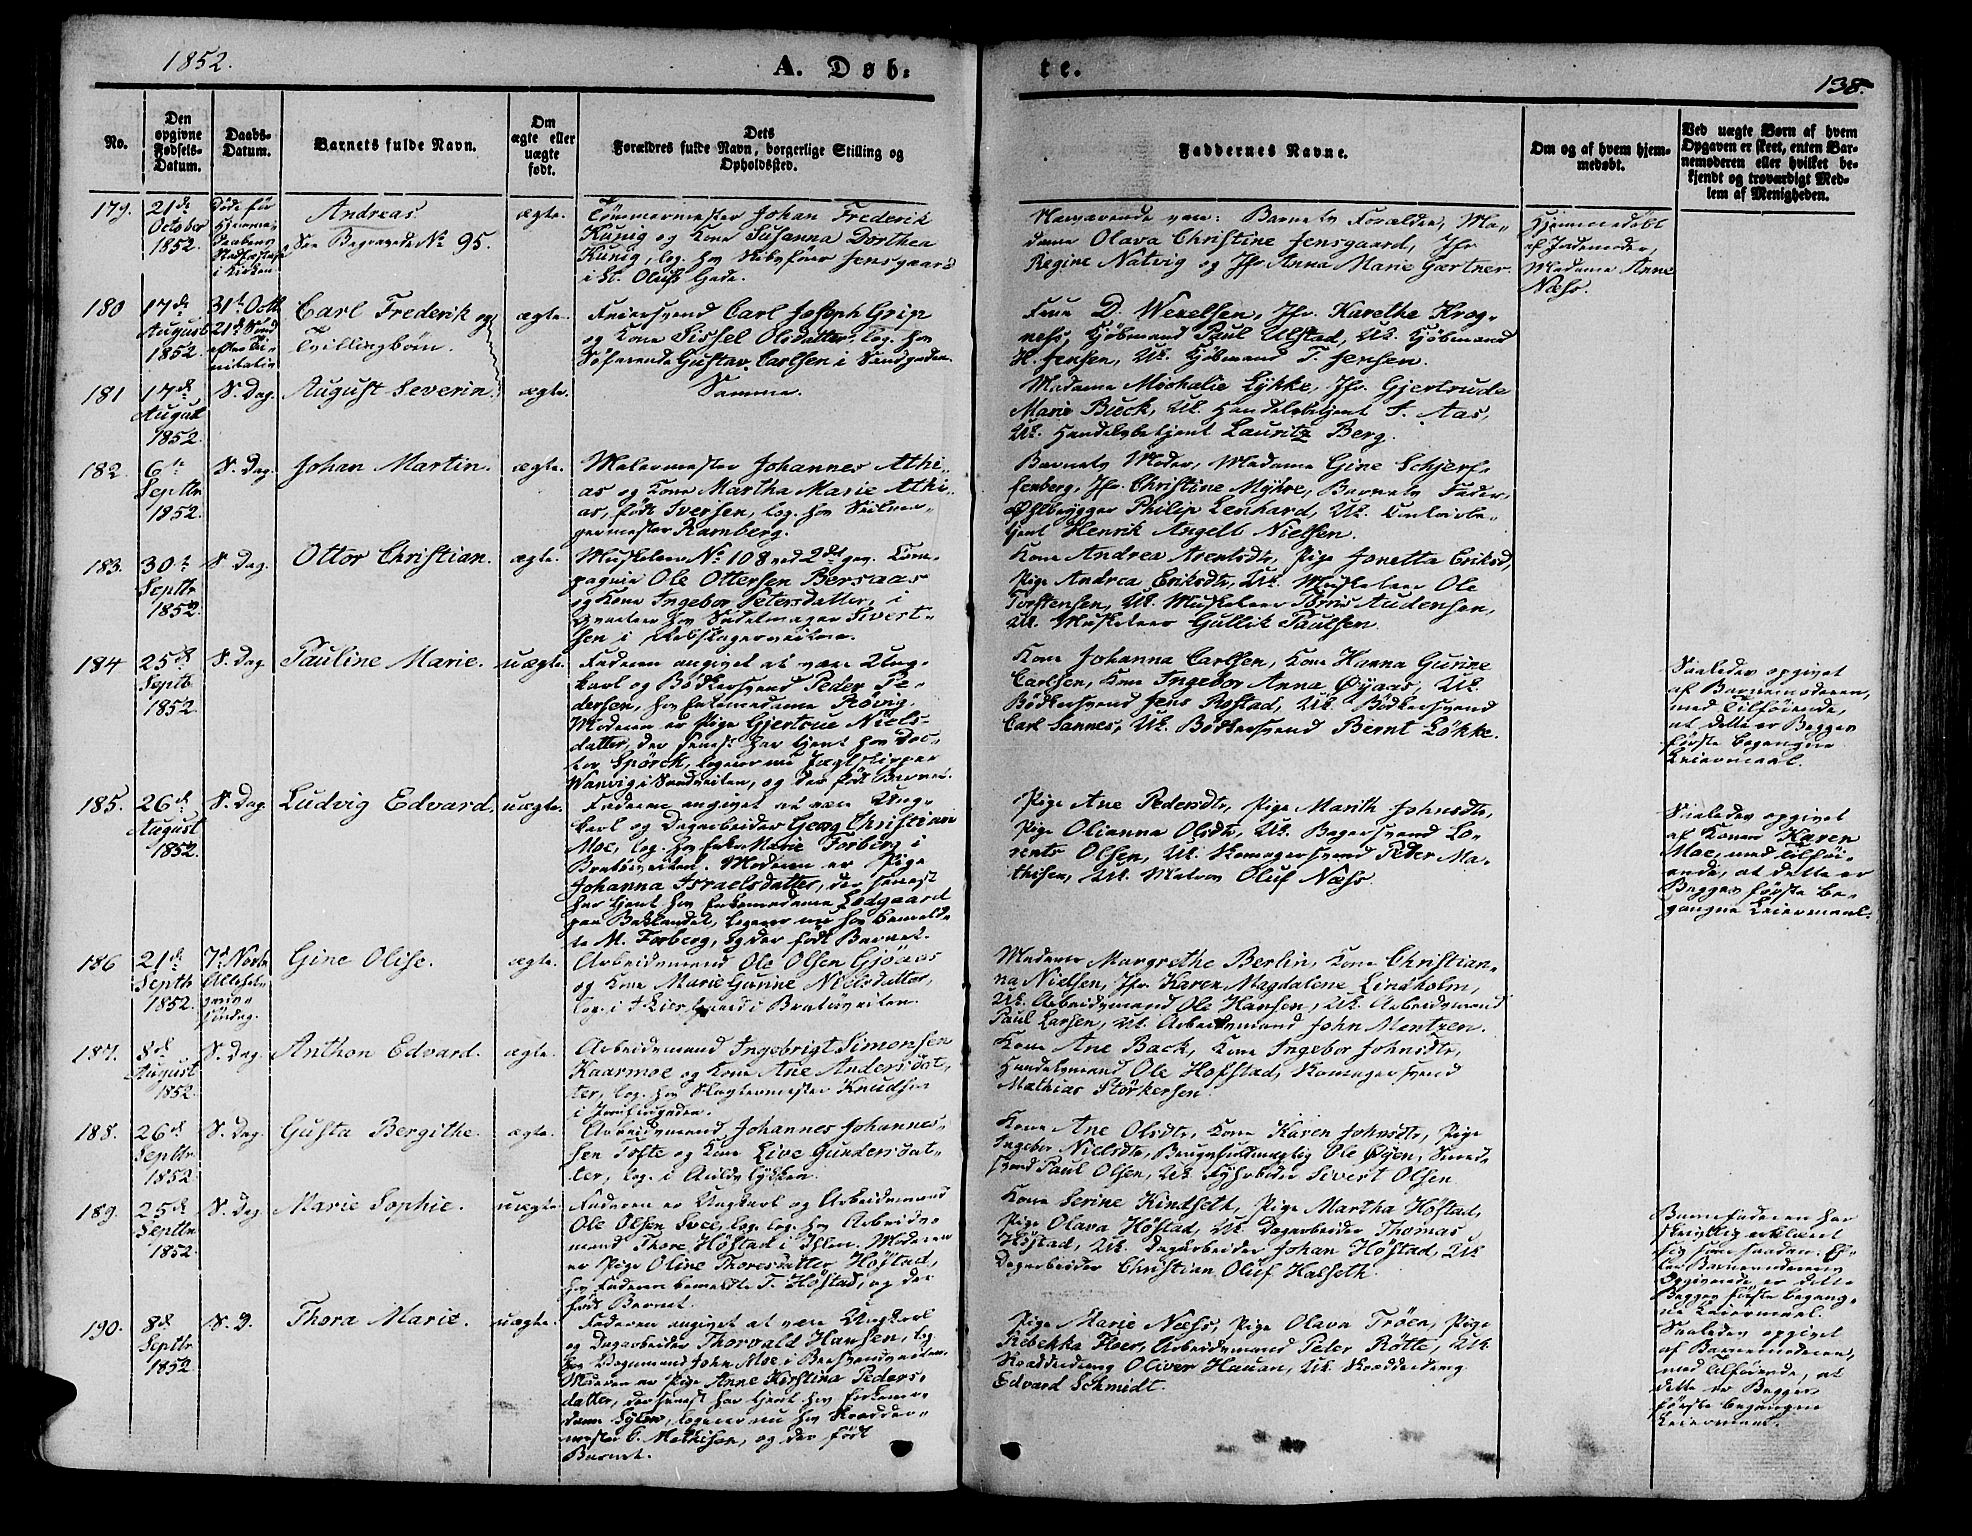 1852.
A. Døb-
te.
138.
No.
Den opgivne Fødsels-Datum.
Daabs-Datum.
Barnets fulde Navn.
Om ægte eller uægte født.
Dets
Forældres fulde Navn, borgerlige Stilling og
Opholdssted.
Faddernes Navne.
Om og af hvem hjem-
medøbt.
Ved uægte Børn af hvem
Opgaven er skeet, enten Bar-
nemoderen eller hvilket be-
kjendt og troværdigt Med-
lem af Menigheden.
179. 21de October 1852.
Andreas
See Begravede No 95.
ægte.
Tømmermester Johan Frederik
Kunig og Kone Susanna Dorthea
Kunig, log. hos Skibsfører Jensgaard
i St. Olufs Gade.
Nærværende vare: Barnets Forældre, Ma-
dame Olava Christine Jensgaard, Jfr.
Regine Natvig og Jfr. Anna Marie Gærtner.
Hjemmedøbt
af Jordemoder,
Madame Anne
Næss.
180 17de August 1852.
31te Octb. 21de Sønd. efter Trinitatis
Carl Frederik og
Tvillingbørn.
ægte.
Feiersvend Carl Joseph Grip
og Kone Sissel Olsdatter, log. hos
Søfarende Gustav Carlsen i Sandgaden.
Frue D. Wexelsen, Jfr. Karethe Krog-
ness, Kjøbmand Paul Ulstad, Uk. Kjøbmand
H. Jensen, Uk. Kjøbmand T. Jensen.
181 17de August 1852.
S. Dag.
August Severin.
ægte.
Samme.
Madame Michalie Lykke, Jfr. Gjertrude
Marie Buck, Uk. Handelsbetjent F. Aas,
Uk. Handelsbetjent Lauritz Berg.
182. 6te Septbr 1852.
S. Dag.
Johan Martin.
ægte.
Malermester Johannes Athi-
as og Kone Martha Marie Athi-
as, født Iversen, log. hos Seilma-
germester Ramberg.
Barnets Moder, Madame Gine Schjerf-
senberg, Jfr. Christine Myhre, Barnets Fader,
Ølbrygger Philip Lenhard, Uk.
Henrik Angell Nielsen.
183. 30te Septbr 1852.
S. Dag.
Ottor Christian.
ægte.
Musketeer No 108 ved 2det gev. Com-
pagnie Ole Ottersen Bersaas
og Kone Ingebor Petersdatter, i
Qvarteer hos Sadelmager Sivert-
sen i Rebslagerveiten.
Kone Andrea Arentsdtr, Pige Jonetta Eriksd,
Pige Andrea Eriksdtr, Uk. Musketeer Ole
Torstensen, Uk. Musketeer Tørris Audensen,
Uk. Musketeer Gullik Paulsen.
184 25de Septb 1852.
S. Dag.
Pauline Marie.
uægte.
Faderen angivet at være Ung-
karl og Bødkersvend Peder Pe-
dersen, hos Enkemadame Røvig.
Moderen er Pige Gjertrue Niels-
datter, der senest har tjent hos Doc-
tor Spørck, logerer nu Jægtskipper
Wanvig i Sandveiten, og der født Barnet.
Kone Johanna Carlsen, Kone Hanna Gurine
Carlsen, Kone Ingebor Anna Øyaas, Uk.
Bødkersvend Jens Rostad, Uk. Bødkersvend
Carl Sannes, Uk. Bødkersvend Bernt Løkke.
Saaledes opgivet
af Barnemoderen,
med Tilføiende,
at dette er Begges
første begangne
Leiermaal.
185. 26de August 1852.
S. Dag.
Ludvig Edvard.
uægte.
Faderen angivet at være Ung-
karl og Dagarbeider Georg Christian
Moe, log. hos Enke Marie Forberg i
Bratørveiten. Moderen er Pige
Johanna Israelsdatter, der senest
har tjent hos Enkemadame Lodgaard
paa Baklandet, logerer nu hos bemeld-
te M. Forberg, og der født Barnet.
Pige Ane Pedersdtr, Pige Marith Johnsdtr,
Pige Olianna Olsdtr, Uk. Bagersvend Lo-
rents Olsen, Uk. Komagersvend Peder Ma-
thisen, Uk. Matros Oluf Næss.
Saaledes opgivet
af Konen Karen
Moe, med Tilføi-
ende, at dette er
Begges første be-
gangne Leiermaal.
186 21de Septb 1852.
7de Novbr Allehelgens Søndag.
Gine Olise.
ægte.
Arbeidsmand Ole Olsen Gjøaas
og Kone Marie Gurine Nielsdatter,
log. i Kiersgaard i Bratørveiten.
Madame Margrethe Berlin, Kone Christian-
na Nielsen, Jfr. Karen Magdalene Lindholm,
Uk. Arbeidsmand Ole Hansen, Uk. Arbeidsmand
Paul Larsen, Uk. Arbeidsmand John Mentzen.
187. 8de August 1852.
S. Dag.
Anthon Edvard.
ægte.
Arbeidsmand Ingebrigt Simonsen
Kaarmoe og Kone Ane Andersdat-
ter, hos Slagtermester Knudsen
i Jomfrugaden.
Kone Ane Back, Kone Ingebor Johnsdtr,
Handelsmand Ole Hofstad, Komagersvend
Mathias Størkersen.
188. 26de Septbr 1852.
S. Dag.
Gusta Bergithe.
ægte.
Arbeidsmand Johannes Johannes-
sen Tofte og Kone Live Gundersdat-
ter, log. i Aulds Lykken.
Kone Ane Olsdtr, Kone Karen Johnsdtr, Pige
Ingebor Nielsdtr, Brugsfuldmægtig Ole Øyen, Smed-
svend Paul Olsen, Uk. Lysstøber Sivert Olsen.
189. 25de Septbr 1852.
S. Dag.
Marie Sophie.
uægte.
Faderen er Ungkarl og Arbeidsmand
Ole Olsen Svee, log. hos Arbeids-
mand Thore Høstad i Ihlen. Moderen
er Pige Oline Thoresdatter Høstad,
hos Faderen bemeldte T. Høstad, og der
født Barnet.
Kone Serine Kindseth, Pige Martha Høstad,
Pige Olava Høstad, Uk. Dagarbeider Thomas
Høstad, Uk. Dagarbeider Johan Høstad, Uk.
Dagarbeider Christian Oluf Halseth.
Barnefaderen har
skriftlig erklæret
sig som saadan. Ef-
ter Barnemoderens
Opgivende er dette
Begges første begang-
ne Leiermaal.
190. 8de Septbr 1852.
S. D.
Thora Marie.
uægte.
Faderen angivet at være Ungkarl
og Dagarbeider Thorvald Hansen, log
hos Vognmand John Moe i Brusveveiten.
Moderen er Pige Anne Kirstina Peders-
datter, der senest har tjent hos Enkema-
dame Sylow, logerer nu hos Skrædder-
mester C. Mathisen, og der født
Barnet.
Pige Marie Næss, Pige Olava Trøen, Pige
Rebekka Floer, Arbeidsmand Peter Røtte, Uk.
Skrædderdreng Oliver Hauan, Uk. Skrædderdreng
Edvard Schmidt.
Saaledes opgivet
af Barnemoderen,
med Tilføiende, at
dette er Begges
første begangne
Leiermaal.